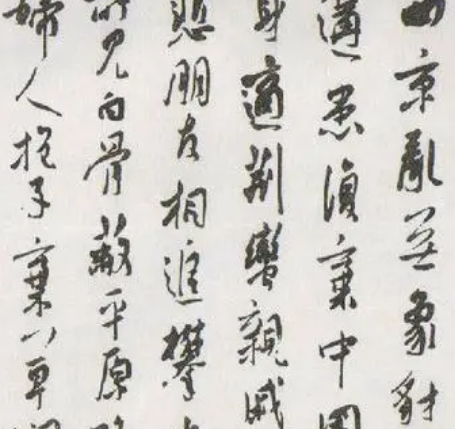 西京亂無象豺
遘患復棄中國
身適荊蠻親戚
悲朋友相追攀
所見白骨蔽平原
婦人抱子棄草